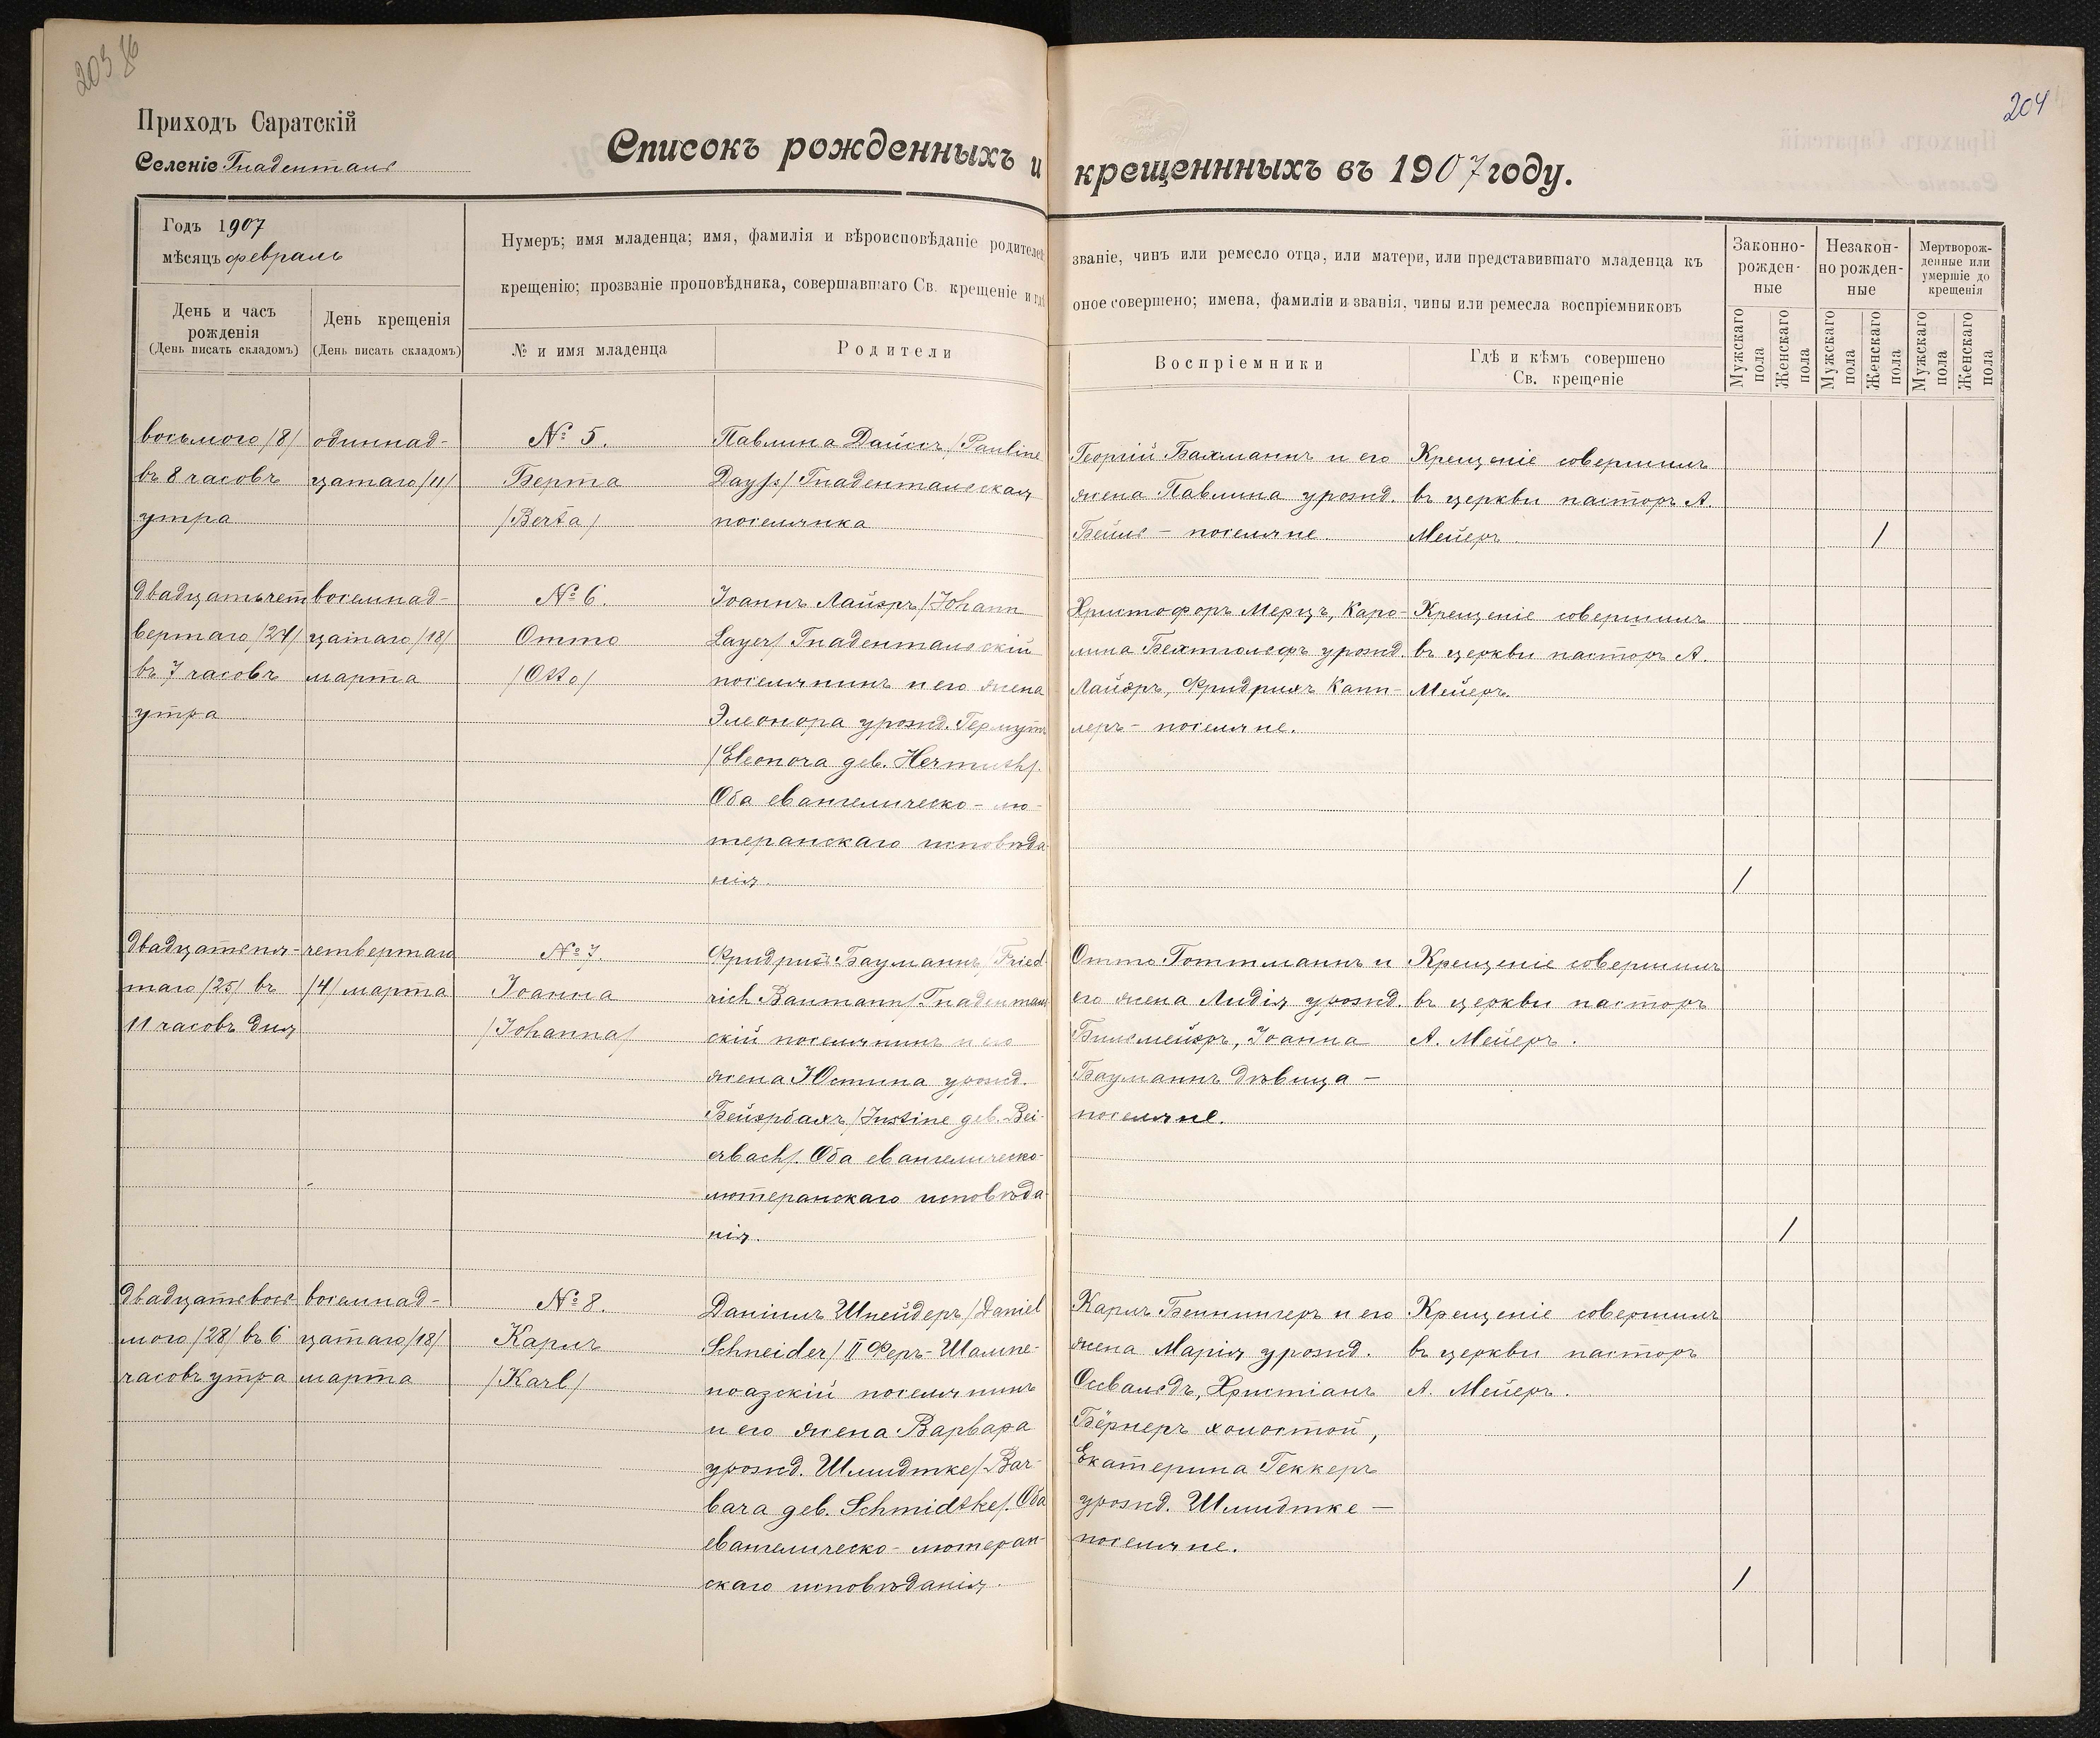 203 об
204
Приходъ Саратскій
Селеніе Гнаденталь
Списокъ рожденныхъ и крещеннныхъ въ 1907 году.
Годъ 1907
мѣсяцъ февраль
День и часъ рожденія
(День писать складомъ)
День крещенія
(День писать складомъ)
Нумеръ; имя младенца; имя, фамилія и вѣроисповѣданіе родителей
крещенію; прозваніе проповѣдника, совершавшаго Св. крещеніе и гдѣ
№ и имя младенца
Родители
званіе, чинъ или ремесло отца, или матери, или представившаго младенца къ
оное совершено; имена, фамиліи и званія, чины или ремесла воспріемниковъ
Воспріемники
Гдѣ и кѣмъ совершено
Св. крещеніе
Законно-
рожден-
ные
Незакон-
но рожден-
ные
Мертворож-
денные или
умершіе до
крещенія
Мужскаго пола
Женскаго пола
Мужскаго пола
Женскаго пола
Мужскаго пола
Женскаго пола
восьмого /8/
въ 8 часовъ
утра
одиннад-
цатаго /11/
№ 5.
Берта
/Berta/
Павлина Дайссъ /Pauline
Dayß/ Гнадентальская
поселянка
Георгій Бахманнъ и его
жена Павлина урожд.
Бейль - поселяне.
Крещеніе совершилъ
въ церкви пасторъ А.
Мейеръ.
/
двадцатьчет
вертаго /24/
въ 7 часовъ
утра
восемнад-
цатаго /18/
марта
№ 6.
Отто
/Otto/
Іоаннъ Лайэръ /Johann
Layer/ Гнадентальскій
поселянинъ и его жена
Элеонора урожд. Гермутъ
/Eleonora geb. Hermuth/.
Оба евангелическо-лю-
теранскаго исповѣда
нія.
Христофоръ Мерцъ, Каро-
лина Бехтгольдъ урожд.
Лайэръ, Фридрихъ Капп-
леръ - поселяне.
Крещеніе совершилъ
въ церкви пасторъ А.
Мейеръ.
/
двадцатьпя-
таго /25/ въ
11 часовъ дня
четвертаго
/4/ марта
№ 7.
Іоанна
/Johanna/
Фридрихъ Бауманнъ /Fried-
rich Baumann/ Гнаденталь
скій поселянинъ и его
жена Юстина урожд.
Бейэрбахъ /Justine geb. Bei-
erbach/. Оба евангелическо-
лютеранскаго исповѣда
нія.
Отто Готтманнъ и
его жена Лидія урожд.
Бильмейэръ, Іоанна
Бауманнъ дѣвица -
поселяне.
Крещеніе совершилъ
въ церкви пасторъ
А. Мейеръ.
/
двадцатьвось
мого /28/ въ 6
часовъ утра
восемнад-
цатаго /18/
марта
№ 8.
Карлъ
/Karl/
Даніилъ Шнейдеръ /Daniel
Schneider/ II Феръ-Шампе-
ноазскій поселянинъ
и его жена Варвара
урожд. Шмидтке /Bar-
bara geb. Schmidtke/. Оба
евангелическо-лютеран-
скаго исповѣданія.
Карлъ Беннингеръ и его
жена Марія урожд.
Освальдъ, Христіанъ
Бёрнеръ холостой,
Екатерина Геккеръ
урожд. Шмидтке -
поселяне.
Крещеніе совершилъ
въ церкви пасторъ
А. Мейеръ.
/